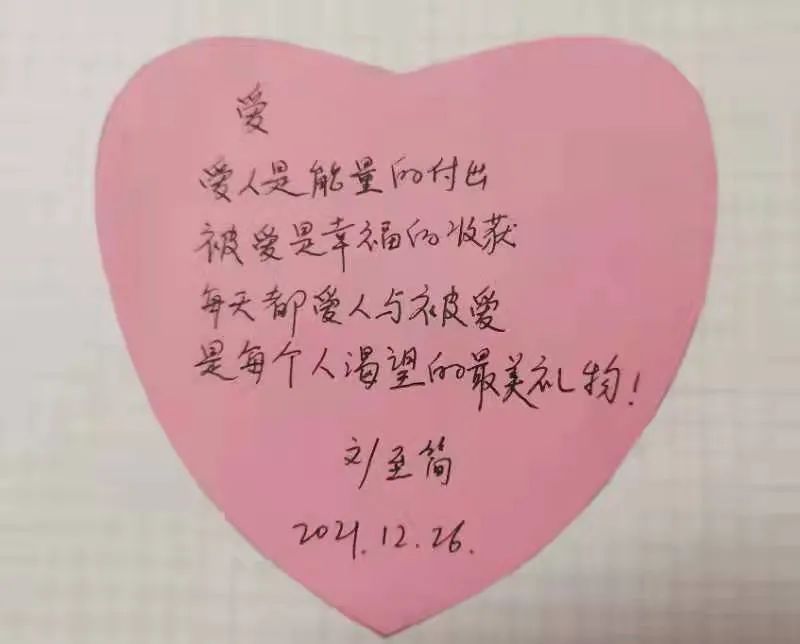 爱
爱人是能量的付出
被爱是幸福的收获
每天都爱人与被爱
是每个人渴望的最美礼物!
文/至简
2021.12.26.